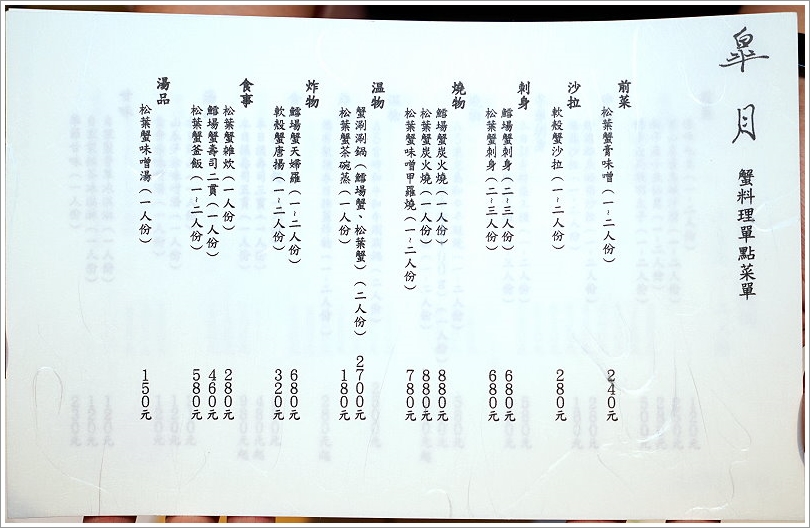 皐月
蟹料理單點菜單
前菜
松葉蟹膏味噌(一~二人份) 240元
沙拉
軟殼蟹沙拉(一~二人份) 280元
刺身
鱈場蟹刺身(二~三人份) 680元
松葉蟹刺身(二~三人份) 680元
燒物
鱈場蟹炭火燒(一人份) 880元
松葉蟹炭火燒(一人份) 880元
松葉蟹味噌甲羅燒(一~二人份) 780元
溫物
蟹涮涮鍋(鱈場蟹、松葉蟹)(二人份) 2700元
松葉蟹茶碗蒸(一人份) 180元
炸物
鱈場蟹天婦羅(一~二人份) 680元
軟殼蟹唐揚(一~二人份) 320元
食事
松葉蟹雜炊(一人份) 280元
鱈場蟹壽司二貫(一人份) 460元
松葉蟹釜飯(一~二人份) 580元
湯品
松葉蟹味噌湯(一人份) 150元